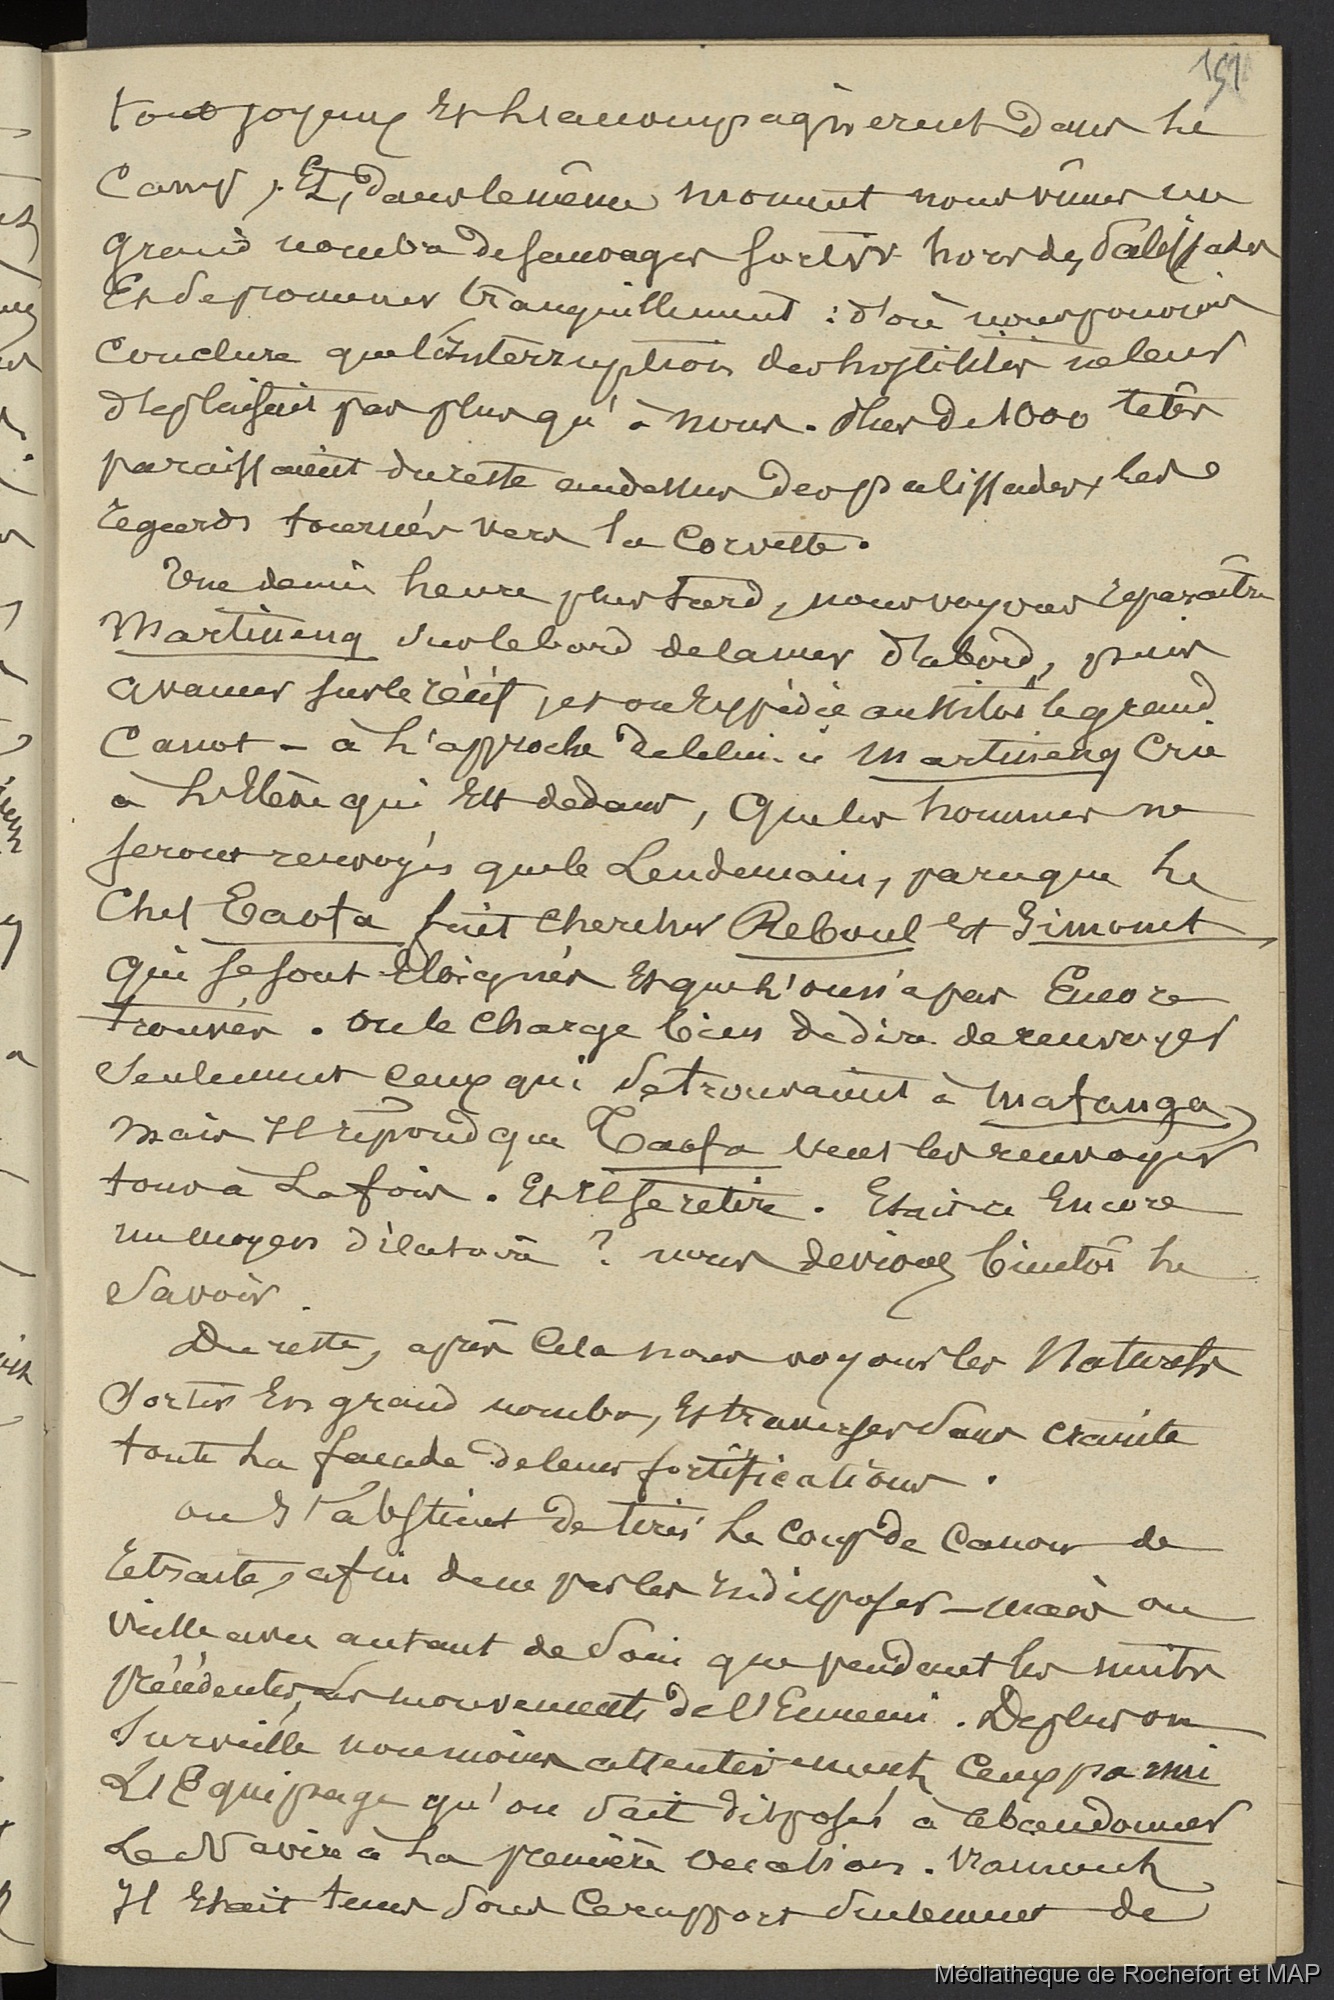 151
tout joyeux et l'accompagnèrent dans le
Camp, Et, dans le même moment nous vîmes un
grand nombre de sauvages sortir hors des Palissades
Et se promener tranquillement : d'où nous pouvions
Conclure que l'interruption des hostilités ne leur
déplaisait pas plus qu'à nous. Plus de 1000 têtes
paraissaient du reste au dessus des palissades, les
regards tournés vers la Corvette.
Une demie heure plus tard, nous voyons reparaître
Martineng sur le bord de la mer d'abord, puis
avancer sur le récif, et on Expédie aussitôt le grand
Canot - à l'approche de celui-ci Martineng Crie
à l'Elève qui Est dedans, Que les hommes ne
seront renvoyés que le Lendemain, parceque le
Chef Taofa fait chercher Reboul et Simonet
qui se sont Eloignés Et que l'on n'a pas Encore
trouvés. On le Charge bien de dire de renvoyer
seulement ceux qui se trouvaient à Mafanga,
mais Il répond que Taofa veut les renvoyer
tous à La fois. Et Il se retire. Etait-ce Encore
un moyen dilatoire ? nous devions bientôt le
Savoir.
Du reste, après Cela nous voyons les Naturels
Sortir En grand nombre, Et traverser sans crainte
toute La façade de leurs fortifications.
on s'abstient de tirer Le Coup de Canon de
retraite, afin de ne pas les Indisposer - mais on
veille avec autant de soin que pendant les nuits
précédentes, les mouvements de l'Ennemi. De plus on
Surveille non moins attentivement Ceux parmi
L'Equipage qu'on sait disposés à abandonner
Le Navire à La première occasion. Vraiment
Il Etait tems sous Ce rapport seulement de
Médiathèque de Rochefort et MAP